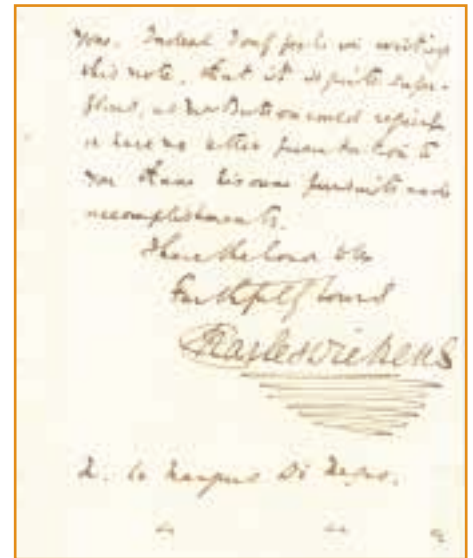 you. Indeed I only feel in writing
this note, that it is quite super-
fluous, as Mr Burton could require
or have no better to
you than his own pursuits and
accomplishments.
I have the honor to be
Faithfully Yours
Charles Dickens
Di Negro.